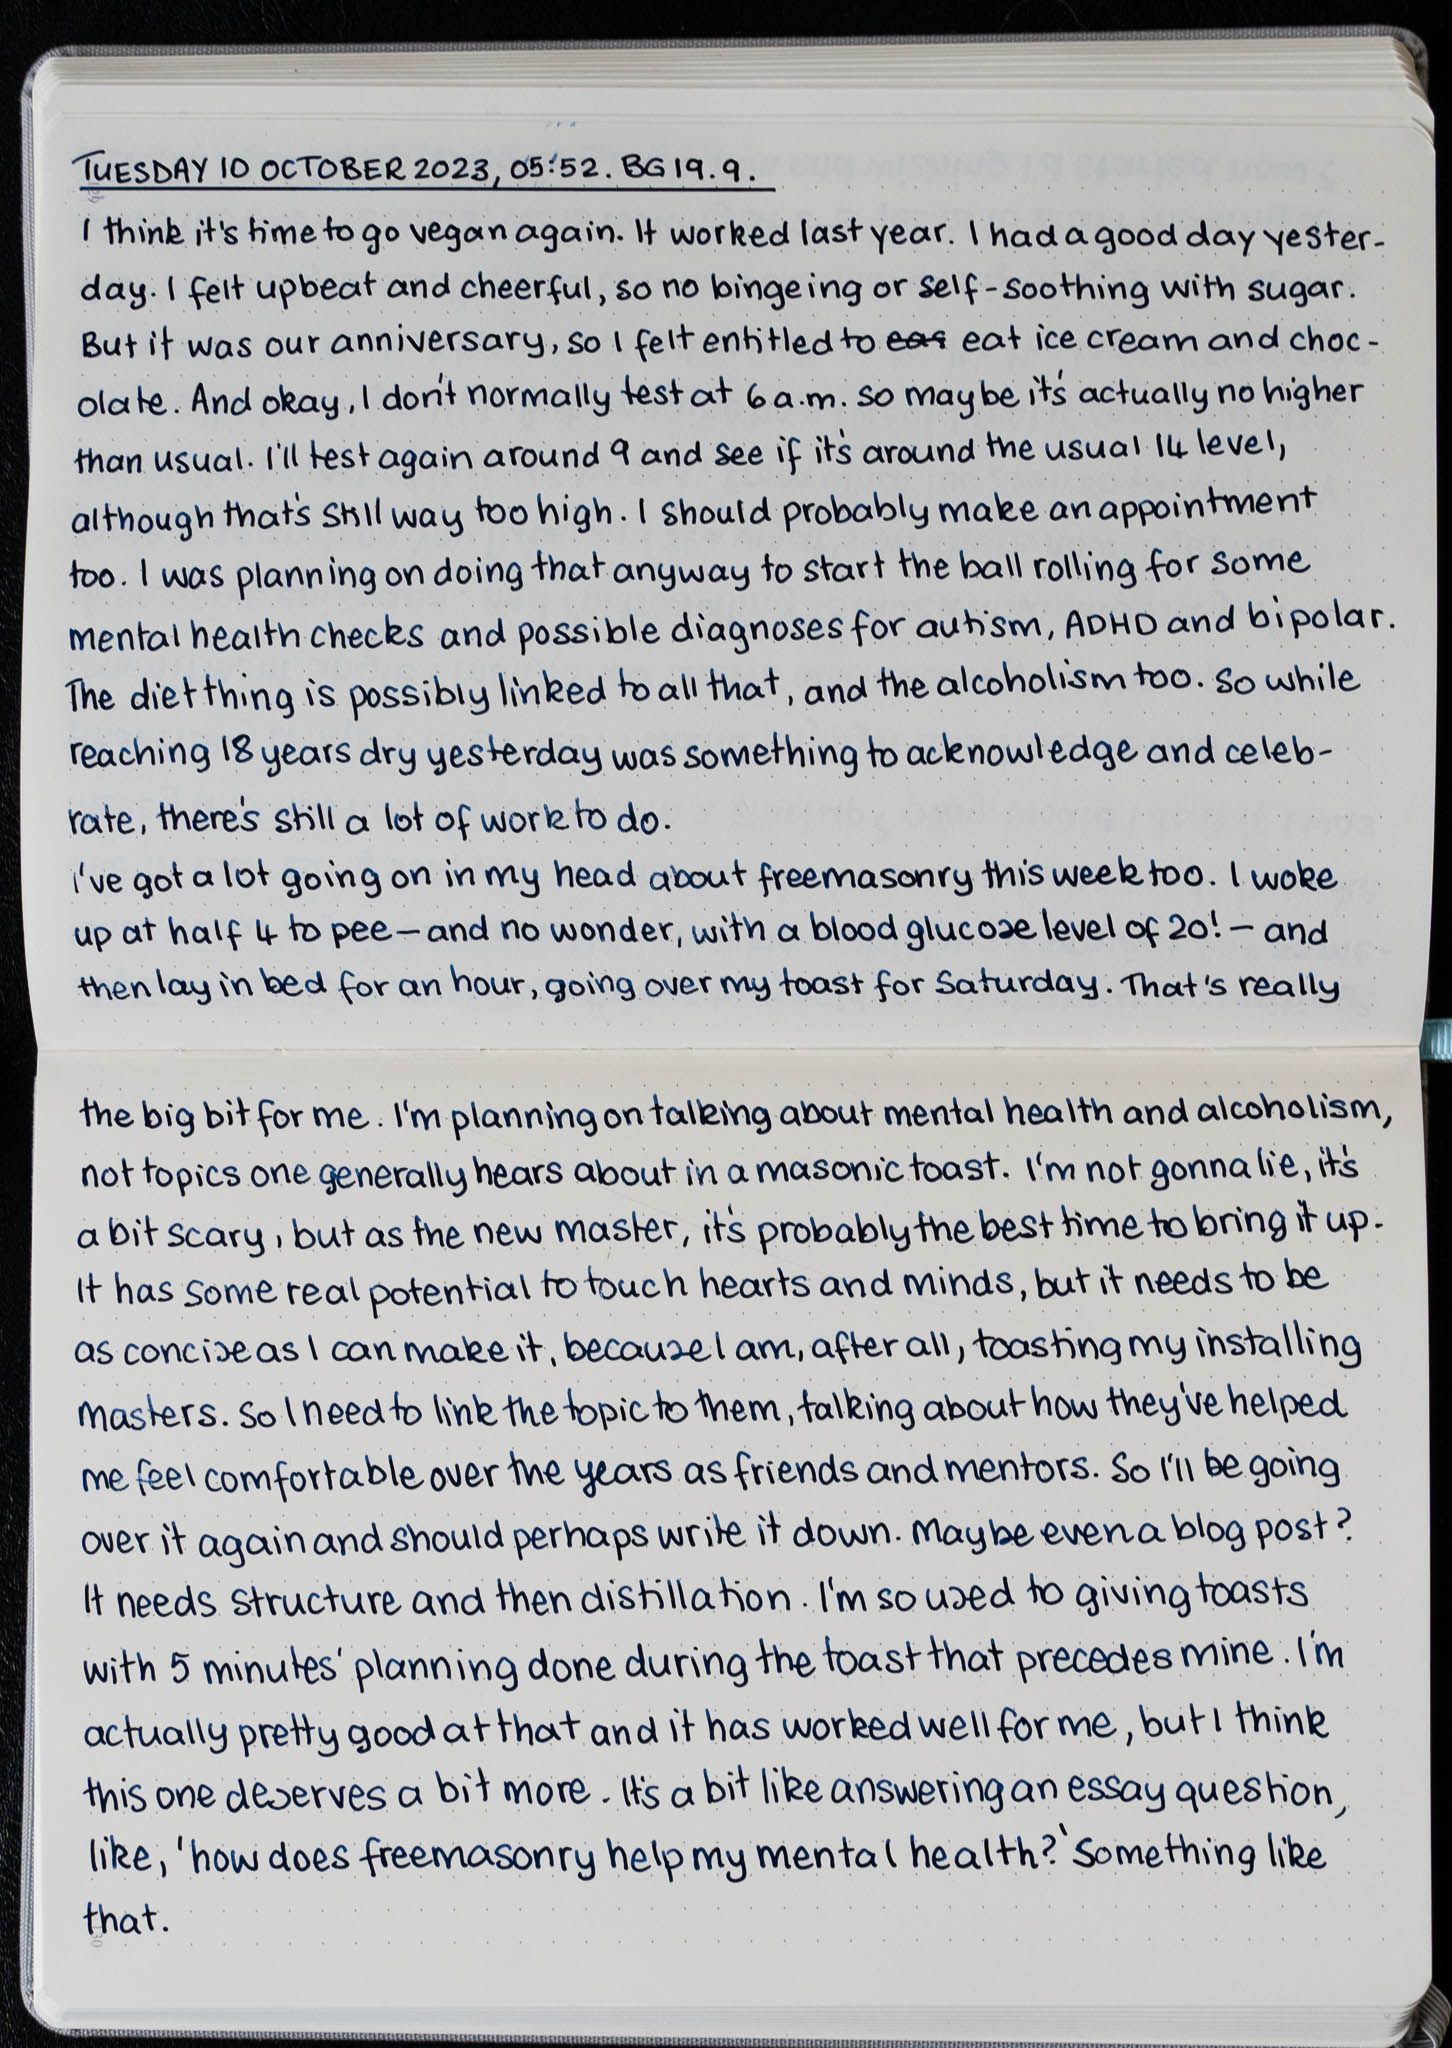 TUESDAY 10 OCTOBER 2023, 05:52. BG 19.9.
I think it's time to go vegan again. It worked last year. I had a good day yester-
day. I felt upbeat and cheerful, so no bingeing or self-soothing with sugar.
But it was our anniversary, so I felt entitled to eas eat ice cream and choc-
olate. And okay, I don't normally test at 6 a.m. so maybe it's actually no higher
than usual. I'll test again around 9 and see if it's around the usual 14 level,
although that's still way too high. I should probably make an appointment
too. I was planning on doing that anyway to start the ball rolling for some
mental health checks and possible diagnoses for autism, ADHD and bipolar.
The diet thing is possibly linked to all that, and the alcoholism too. So while
reaching 18 years dry yesterday was something to acknowledge and celeb-
rate, there's still a lot of work to do.
I've got a lot going on in my head about freemasonry this week too. I woke
up at half 4 to pee – and no wonder, with a blood glucose level of 20! – and
then lay in bed for an hour, going over my toast for Saturday. That's really
the big bit for me. I'm planning on talking about mental health and alcoholism,
not topics one generally hears about in a masonic toast. I'm not gonna lie, it's
a bit scary, but as the new master, it's probably the best time to bring it up.
It has some real potential to touch hearts and minds, but it needs to be
as concise as I can make it, because I am, after all, toasting my installing
masters. So I need to link the topic to them, talking about how they've helped
me feel comfortable over the years as friends and mentors. So I'll be going
over it again and should perhaps write it down. Maybe even a blog post?
It needs structure and then distillation. I'm so used to giving toasts
with 5 minutes' planning done during the toast that precedes mine. I'm
actually pretty good at that and it has worked well for me, but I think
this one deserves a bit more. It's a bit like answering an essay question,
like, 'how does freemasonry help my mental health?' Something like
that.